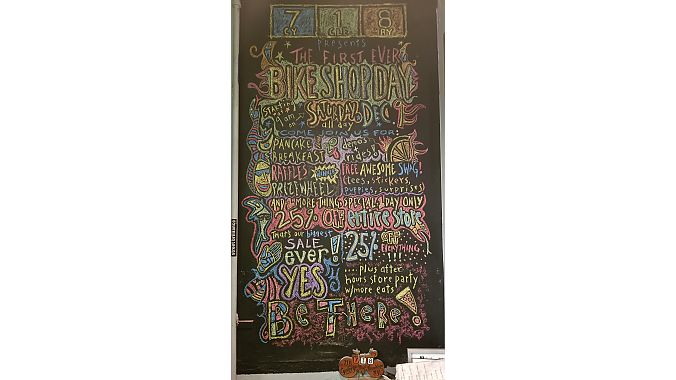 7 1 8
CY CLE RY
presents
THE FIRST EVER
BIKE SHOP DAY
starting 9am on
SATURDAY, DEC 1st
all day
COME JOIN US FOR:
PANCAKE BREAKFAST
demos + rides!
RAFFLES
PRIZE WHEEL
FREE AWESOME SWAG!
(tees, stickers, puppies, surprises)
AND 1 MORE THING, SPECIAL 1 DAY ONLY
25% OFF entire store
that's our biggest
SALE ever!
25% OFF EVERYTHING!!!
YES
....plus after
hours store party
w/more eats
BE THERE!
718